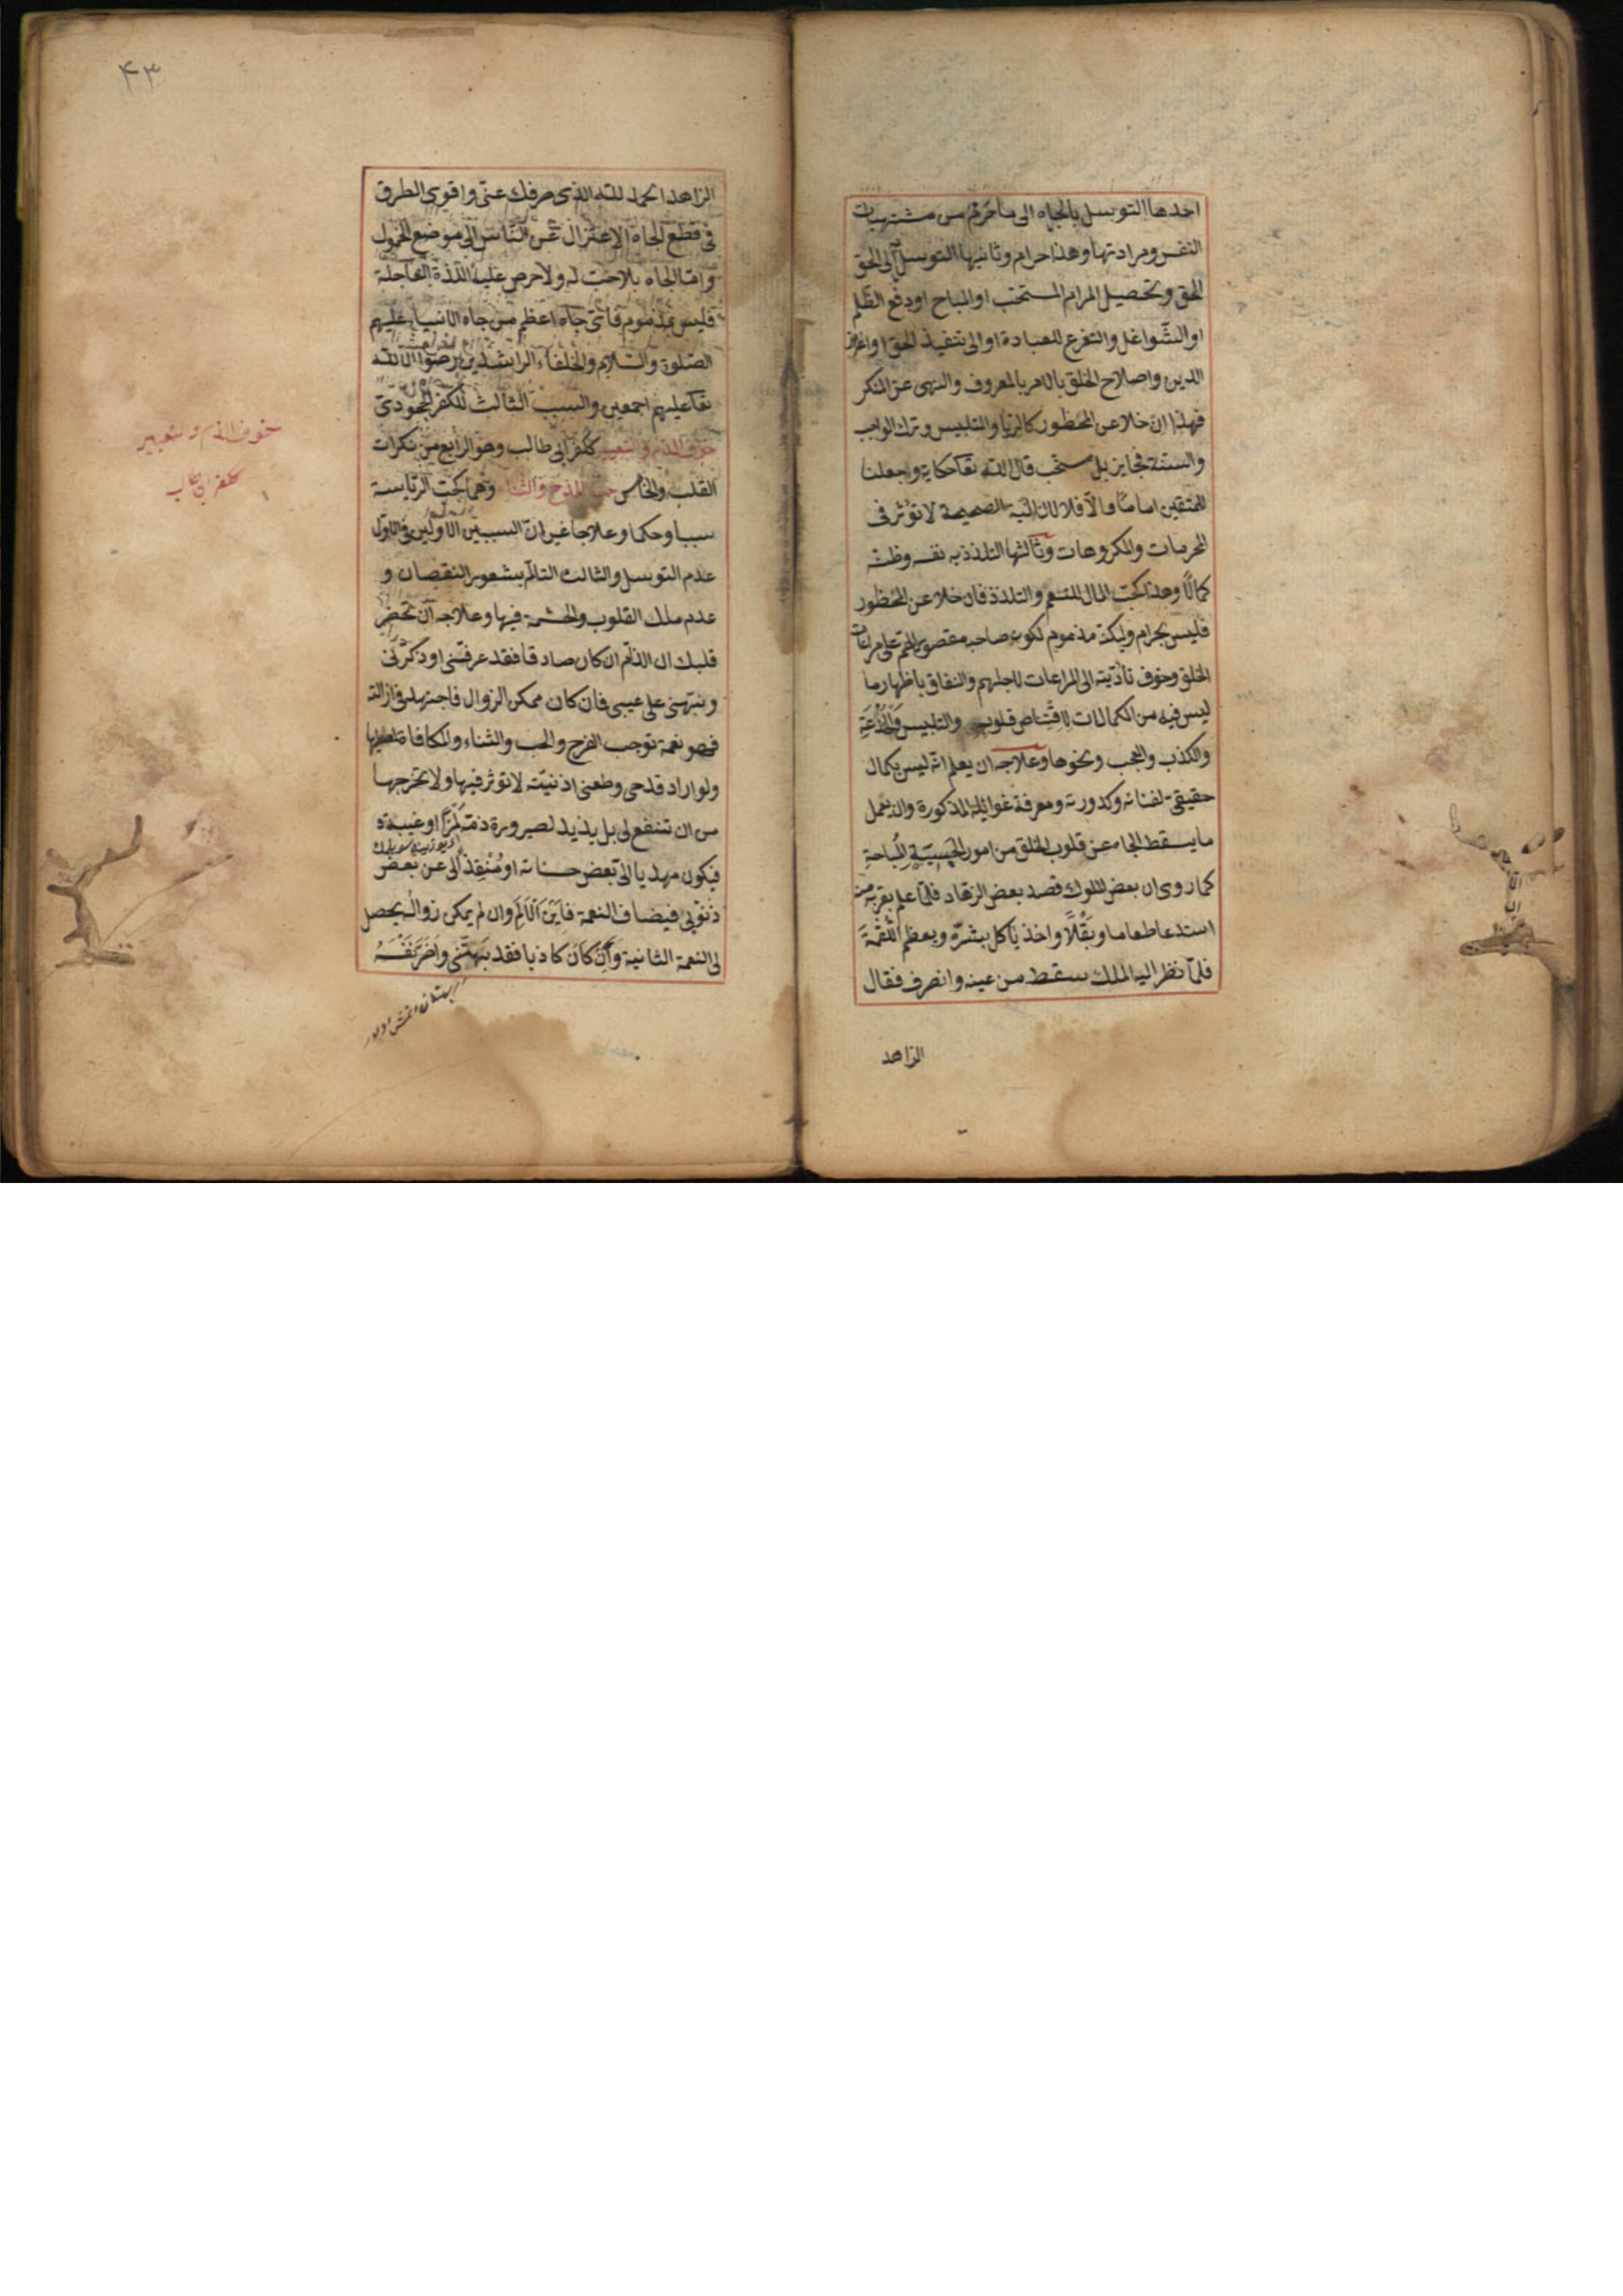 احدها التوسل بالجاه الى ما حرم من مشتهيات
النفس ومراداتها وهذا حرام وثانيها التوسل الى الحق
الحق وتحصيل المرام المستحب او المباح او دفع الظلم
او الشواغل والتفرغ للعبادة او الى تنفيذ الحق واعزاز
الدين واصلاح الخلق بالامر بالمعروف والنهى عن المنكر
فهذا ان خلا عن المحظور كالريا والتلبيس وترك الواجب
والسنة فجايز بل مستحب قال الله تعا حكاية واجعلنا
للمتقين اماما والا فلا لان النية الصحيحة لا تؤثر فى
المحرمات والمكروهات وثالثها التلذذ به نفسه وظنه
كمالا وهذا كحب المال للتنعم والتلذذ فان خلا عن المحظور
فليس بحرام ولكنه مذموم لكون صاحبه مقصور الهم على مراعات
الخلق وخوف تأديته الى المراعات لاجلهم والنفاق باظهار ما
ليس فيه من الكمالات لاقتناص قلوب والتلبيس والخدعة
والكذب والعجب ونحوها وعلاجه ان يعلم انه ليس بكمال
حقيقى لفنائه وكدورته ومعرفة غوائله المذكورة وان يعمل
ما يسقط الجاه عن قلوب الخلق من امور الخسيسة المباحة
كما روى ان بعض الملوك قصد بعض الزهاد فلما علم بقربه منه
استدعا طعاما وبقلا واخذ يأكل بشره ويعظم اللقمة
فلما نظر اليه الملك سقط من عينه وانصرف فقال
الزاهد
٤٣
الزاهد الحمد لله الذى صرفك عنى واقوى الطرق
فى قطع الجاه الاعتزال عن الناس الى موضع الخمول
واما الجاه بلا حب له ولا حرص عليه للذة العاجلة
فليس بمذموم فاى جاه اعظم من جاه الانبياء عليهم
الصلوة والسلام والخلفاء الراشدين رضوان الله
تعا عليهم اجمعين والسبب الثالث للكفر الجحودى
خوف الذم والتعيير ككفر ابى طالب وهو الرابع من نكرات
القلب والخامس حب المدح والثناء وهما كحب الرياسة
سببا وحكما وعلاجا غير ان السببين الاولين فى الاول
عدم التوسل والثالث التالم بشعور النقصان و
عدم ملك القلوب والحشمة فيها وعلاجه ان تحضر
قلبك ان الذام ان كان صادقا فقد عرفنى او ذكرنى
ونبهنى على عيبى فان كان ممكن الزوال فاجتهد فى ازالته
فهو نعمة توجب الفرح والحب والثناء والمكافاة عليها
ولو اراد قدحى وطعنى اذ نيته لا تؤثر فيها ولا تخرجها
من ان تنفع لى بل يزيد لصيرورة ذمه لمزا او غيبة
فيكون مهديا الى بعض حسناته او منقذ لى عن بعض
ذنوبى فيضاف النعمة فاين الالم وان لم يمكن زواله يحصل
لى النعمة الثانية وان كان كاذبا فقد بهتنى واضر نفسه
خوف الذم والتعيير